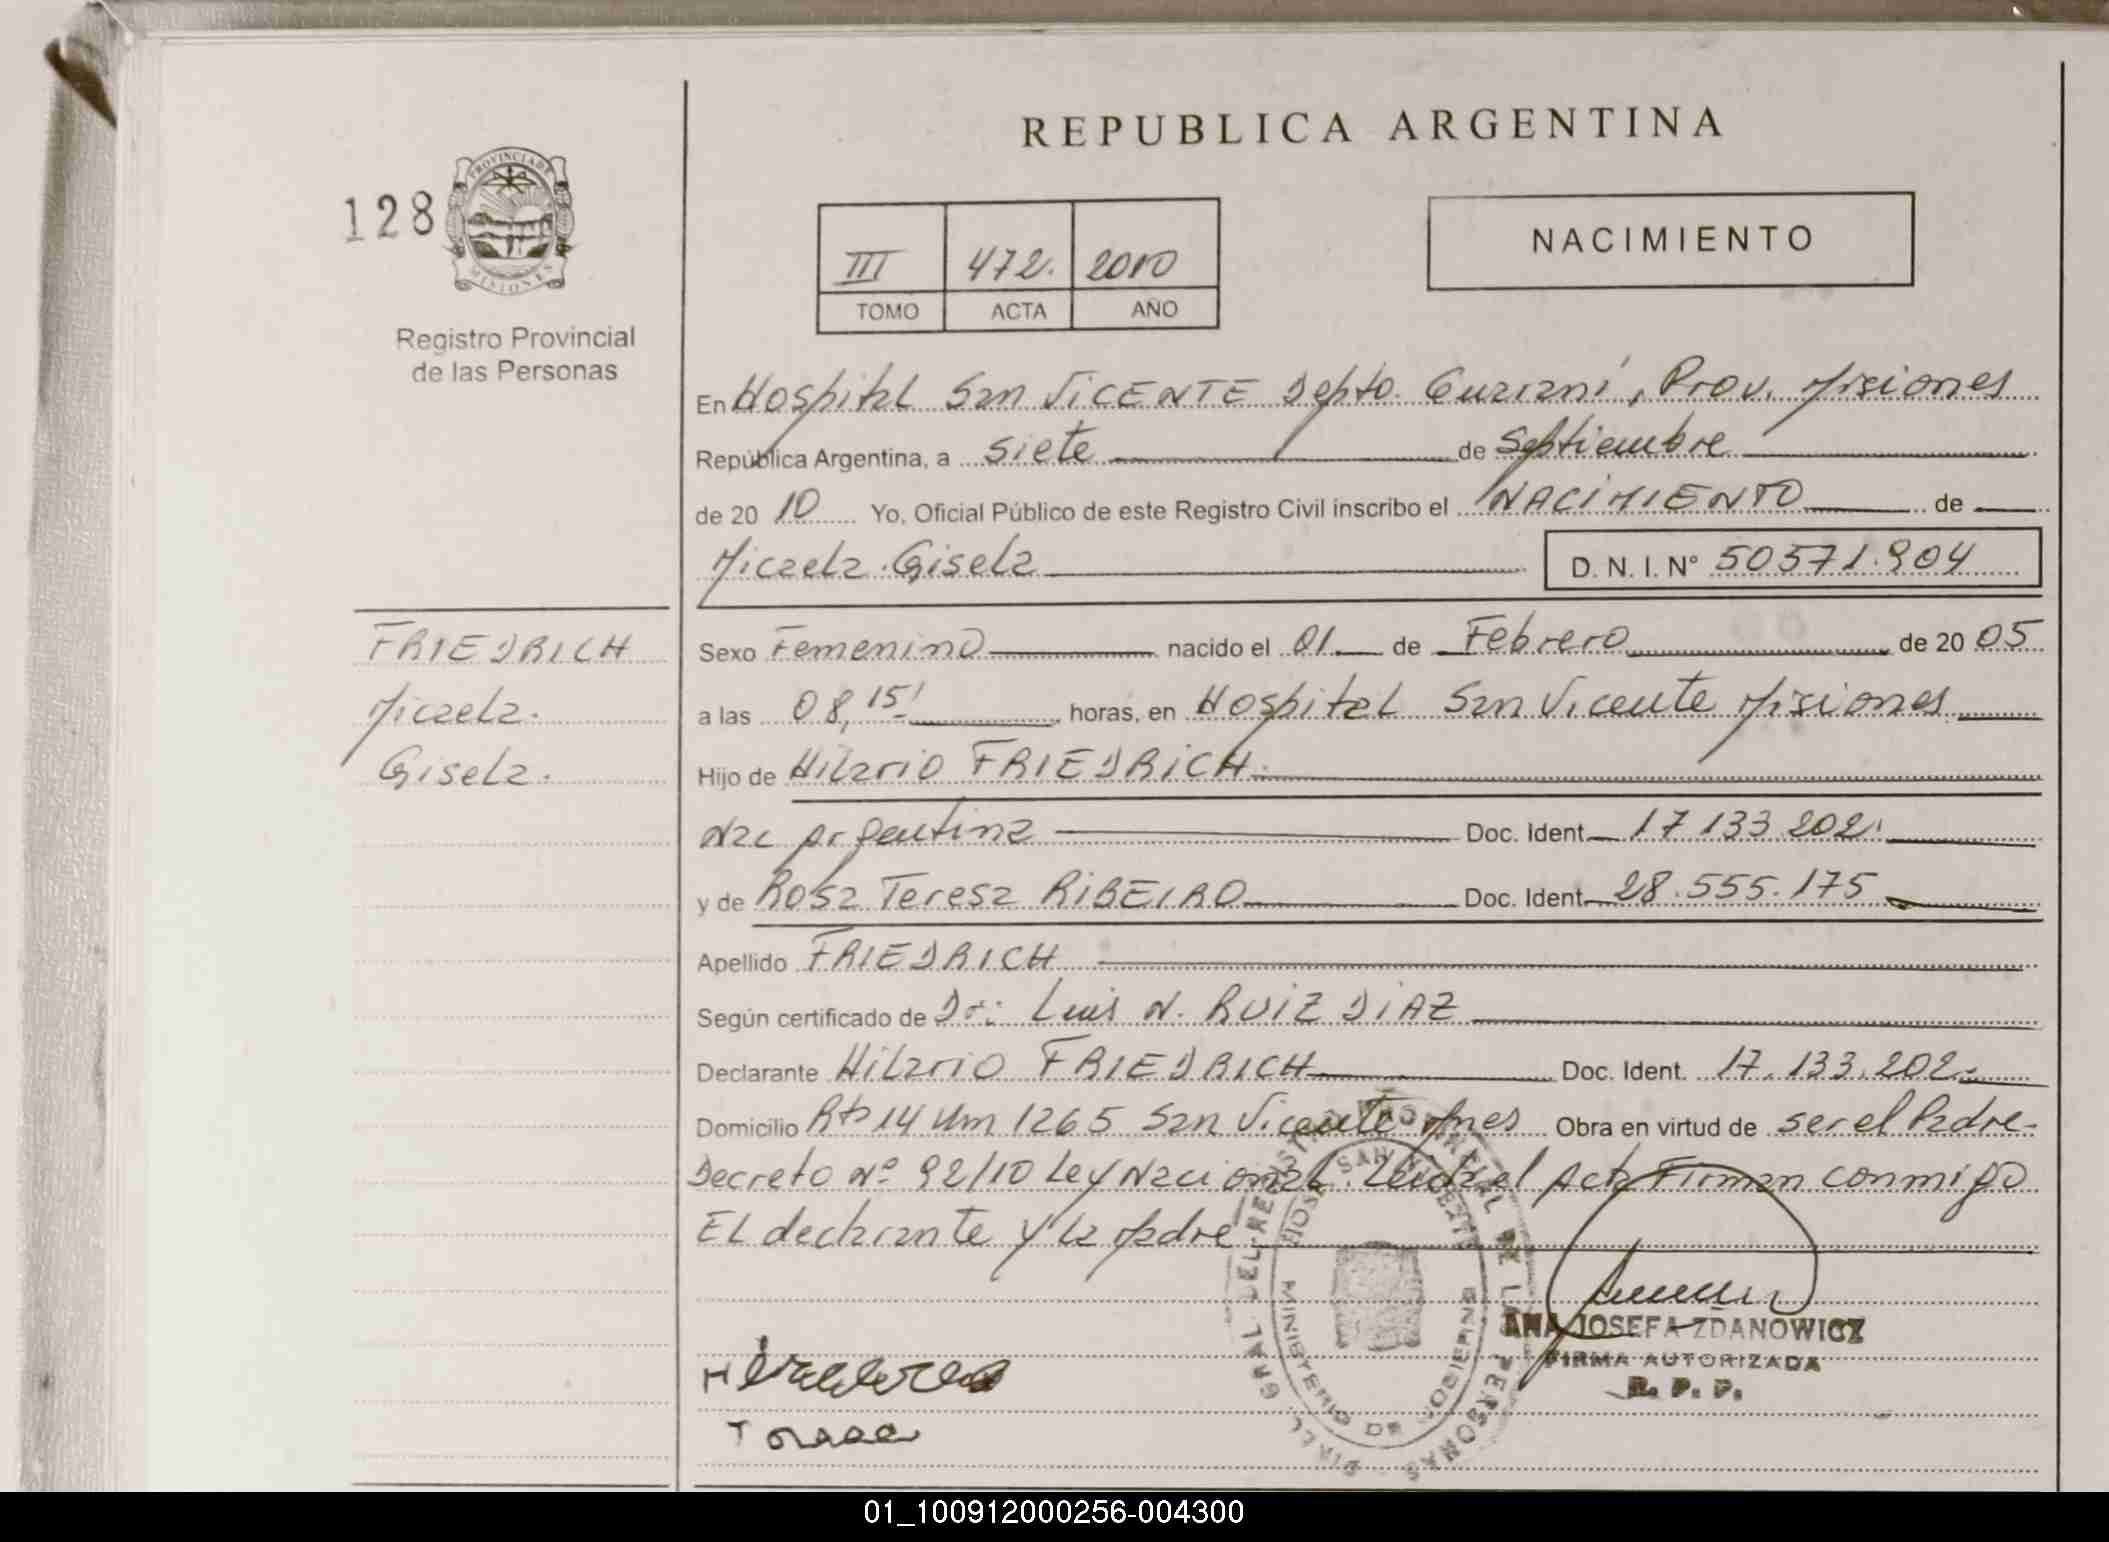 REPUBLICA ARGENTINA
128
PROVINCIA DE
MISIONES
Registro Provincial
de las Personas
III 472. 2010
TOMO ACTA AÑO
NACIMIENTO
En Hospital San VICENTE Depto. Guaraní, Prov. Misiones
República Argentina, a siete de Septiembre
de 20 10 Yo, Oficial Público de este Registro Civil inscribo el NACIMIENTO de
Micaela Gisela D. N. I. N° 50571.904
FRIEDRICH
Micaela.
Gisela.
Sexo Femenino nacido el 01 de Febrero de 20 05
a las 08,15' horas, en Hospital San Vicente Misiones
Hijo de Hilario FRIEDRICH.
Nac Argentina Doc. Ident 17 133 202.
y de Rosa Teresa RIBEIRO Doc. Ident. 28.555.175
Apellido FRIEDRICH
Según certificado de Dr: Luis N. RUIZ DIAZ
Declarante Hilario FRIEDRICH Doc. Ident. 17.133.202.
Domicilio Rta 14 Km 1265 San Vicente Mnes Obra en virtud de ser el Padre-
Decreto Nº 92/10 Ley Nacional. Leida el Acta Firman conmigo
El declarante y la Madre
DIREC. GRAL DEL REGISTRO PROVINCIAL DE LAS PERSONAS
HOSP. SAN VICENTE
MINISTERIO DE GOBIERNO
ANA JOSEFA ZDANOWICZ
FIRMA AUTORIZADA
R. P. P.
01_100912000256-004300